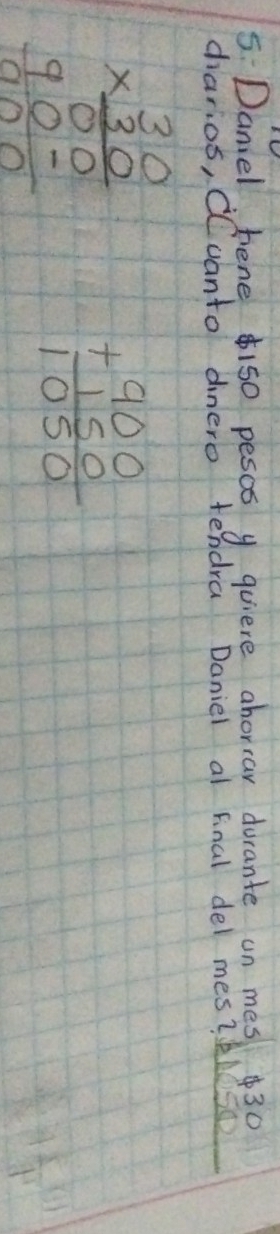 5.- Daniel tiene $150 pesos y quiere ahorrar durante un mes $30
diarios, ¿Cuanto dinero tendra Daniel al final del mes? $1050
30
x 30
00
90-
900
900
+ 150
1050